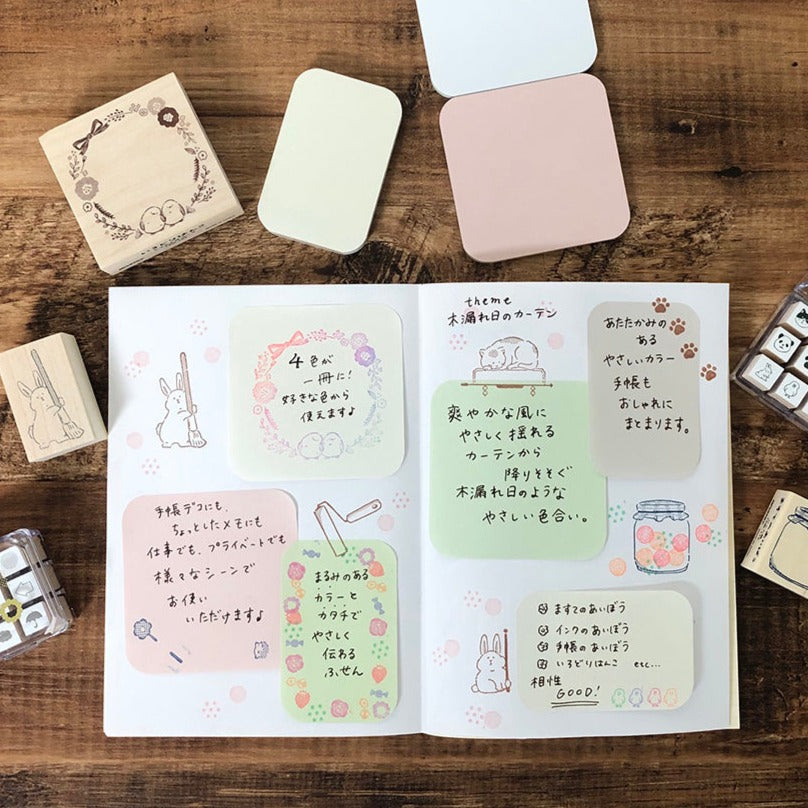 4色が
一冊に!
好きな色から
使えます♪
手帳デコにも、
ちょっとしたメモにも
仕事でも、プライベートでも
様々なシーンで
お使い
いただけます♪
まるみのある
カラーと
カタチで
やさしく
伝わる
ふせん
theme
木漏れ日のカーテン
あたたかみの
ある
やさしいカラー
手帳も
おしゃれに
まとまります。
爽やかな風に
やさしく揺れる
カーテンから
降りそそぐ
木漏れ日のような
やさしい色合い。
ますてのあいぼう
インクのあいぼう
手帳のあいぼう
いろどりはんこ etc...
相性
GOOD!